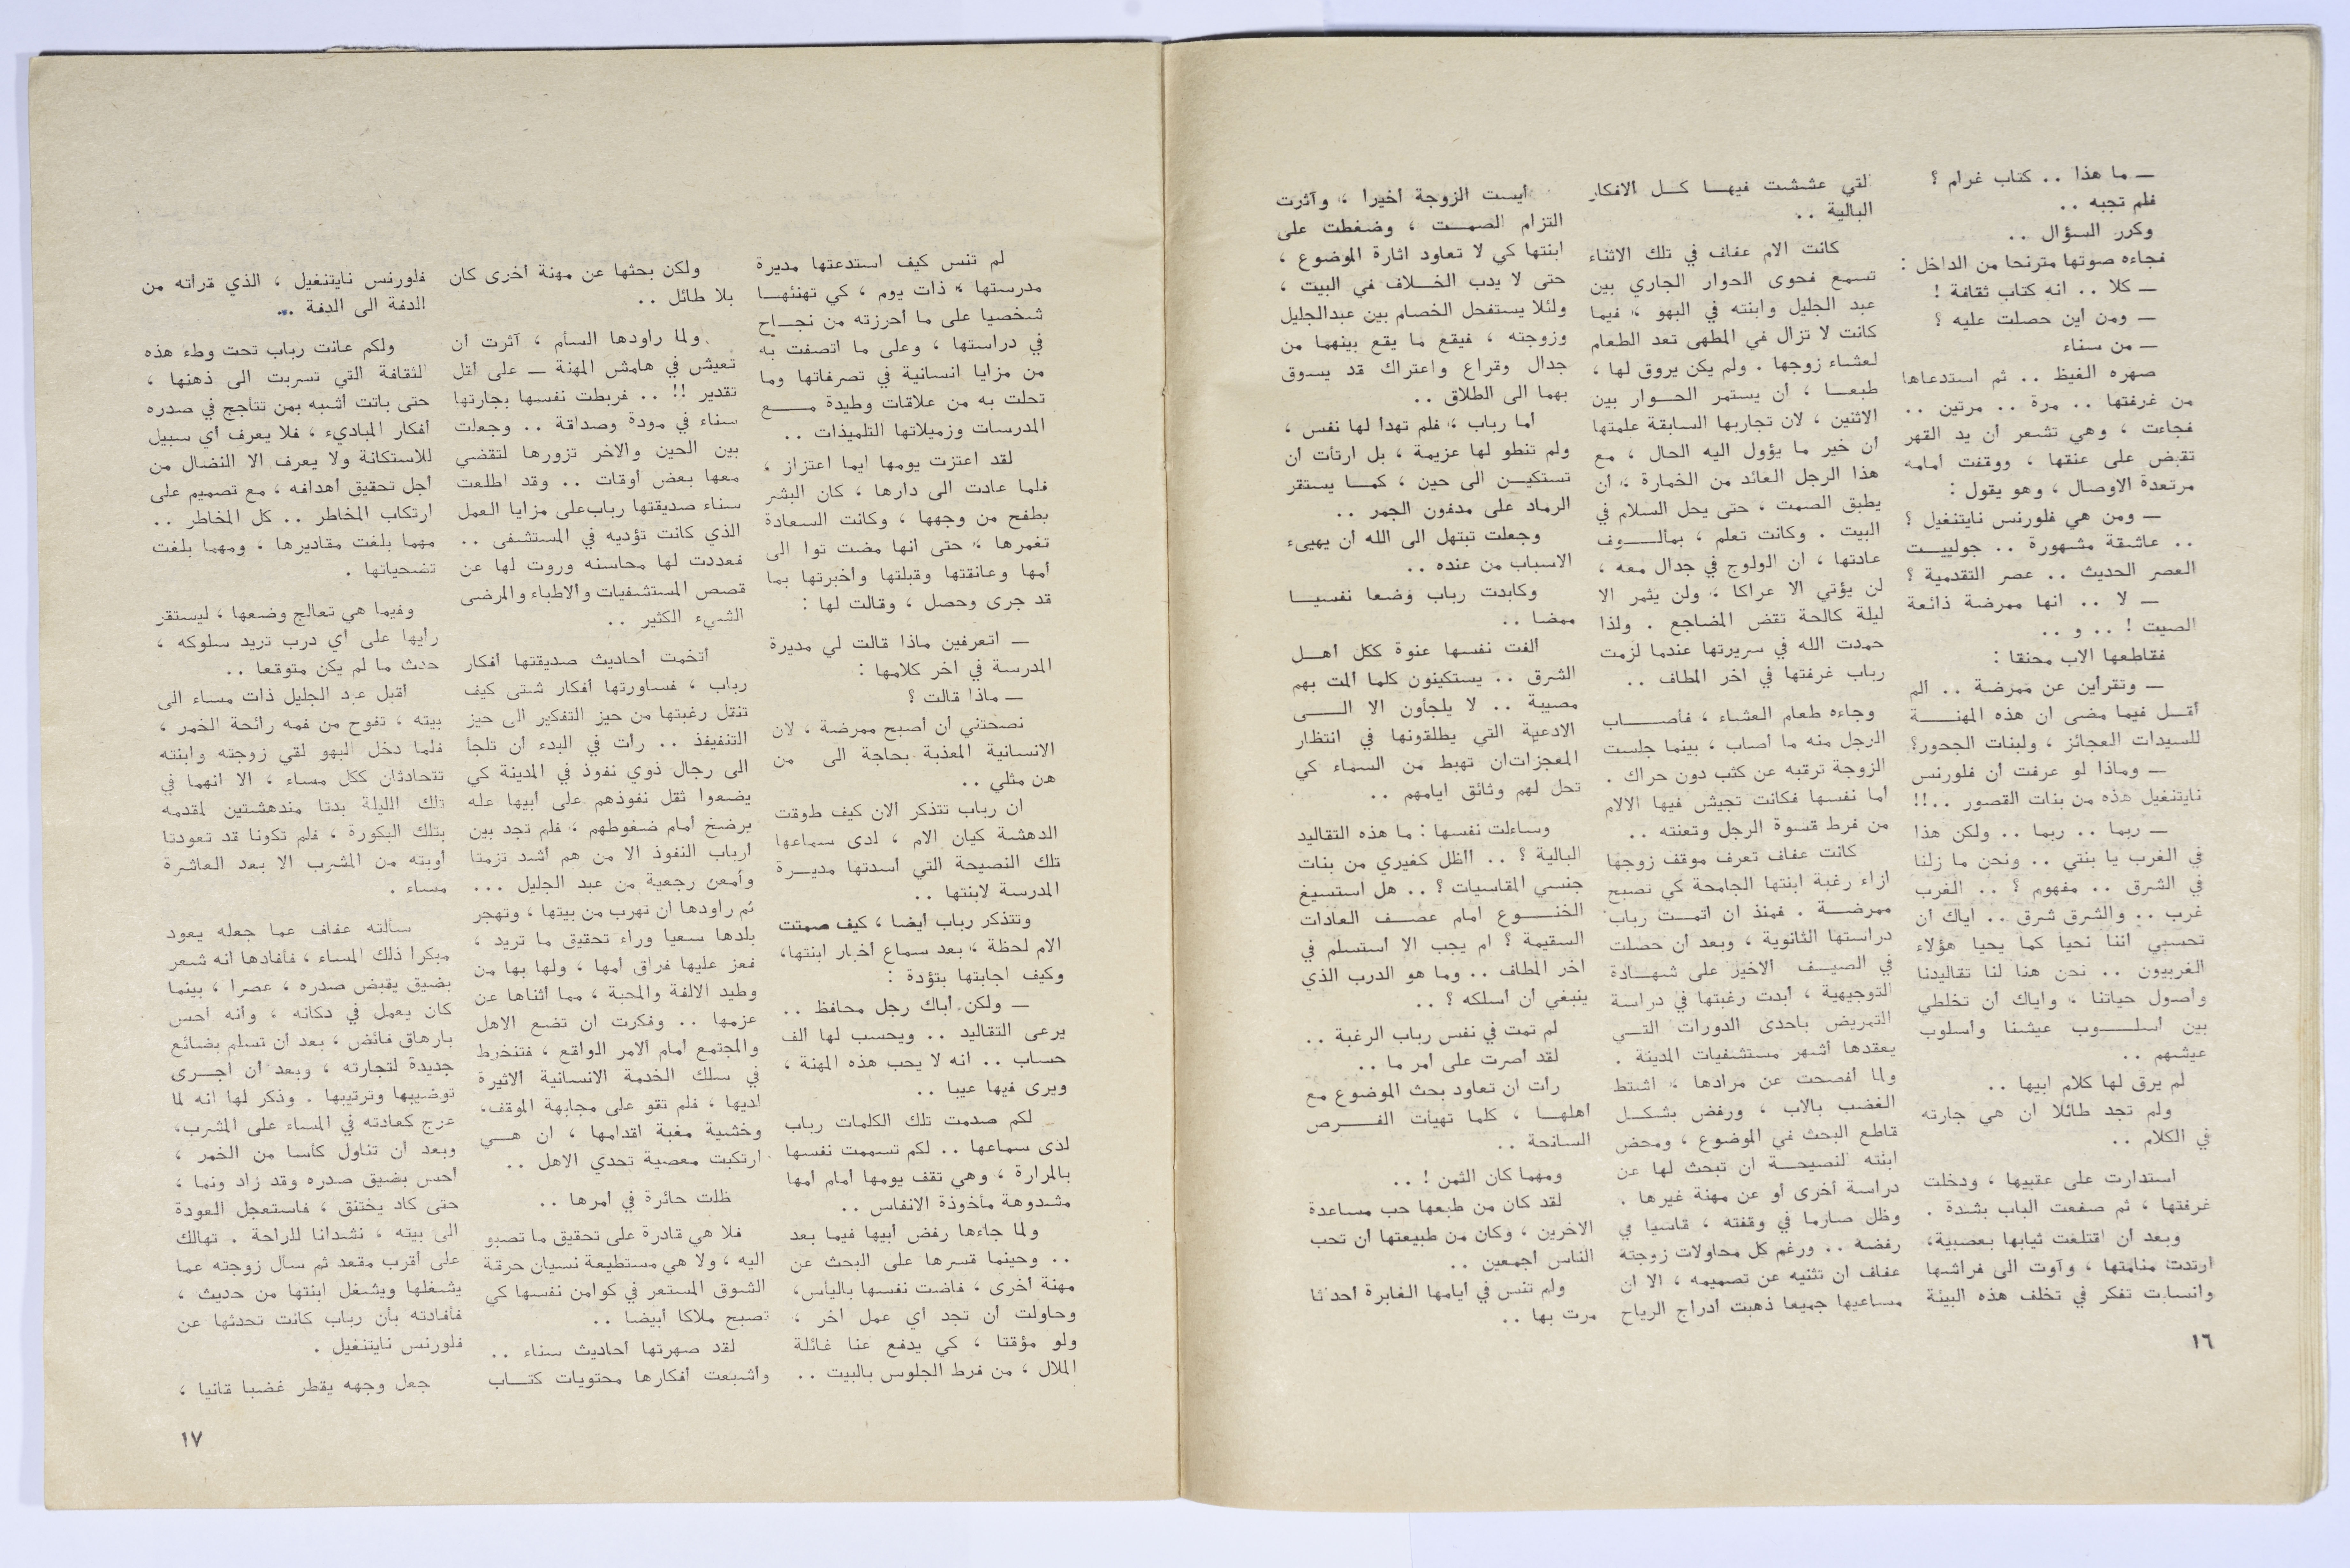 — ما هذا .. كتاب غرام ؟
فلم تجبه ..
وكرر السؤال ..
فجاءه صوتها مترنحا من الداخل :
— كلا .. انه كتاب ثقافة !
— ومن أين حصلت عليه ؟
— من سناء
صهره الغيظ .. ثم استدعاها
من غرفتها .. مرة .. مرتين ..
فجاءت ، وهي تشعر أن يد القهر
تقبض على عنقها ، ووقفت أمامه
مرتعدة الاوصال ، وهو يقول :
— ومن هي فلورنس نايتنغيل ؟
.. عاشقة مشهورة .. جولييت
العصر الحديث .. عصر التقدمية ؟
— لا .. انها ممرضة ذائعة
الصيت ! .. و ..
فقاطعها الاب محنقا :
— وتقرأين عن ممرضة .. ألم
أقل فيما مضى ان هذه المهنة
للسيدات العجائز ، ولبنات الجحور؟
— وماذا لو عرفت أن فلورنس
نايتنغيل هذه من بنات القصور ..!!
— ربما .. ربما .. ولكن هذا
في الغرب يا بنتي .. ونحن ما زلنا
في الشرق .. مفهوم ؟ .. الغرب
غرب .. والشرق شرق .. اياك أن
تحسبي أننا نحيا كما يحيا هؤلاء
الغربيون .. نحن هنا لنا تقاليدنا
وأصول حياتنا ، واياك أن تخلطي
بين أسلوب عيشنا وأسلوب
عيشهم ..
لم يرق لها كلام أبيها ..
ولم تجد طائلا ان هي جارته
في الكلام ..
استدارت على عقبيها ، ودخلت
غرفتها ، ثم صفعت الباب بشدة .
وبعد أن اقتلعت ثيابها بعصبية،
ارتدت منامتها ، وآوت الى فراشها
وانسابت تفكر في تخلف هذه البيئة
لتي عششت فيها كل الافكار
البالية ..
كانت الام عفاف في تلك الاثناء
تسمع فحوى الحوار الجاري بين
عبد الجليل وابنته في البهو ، فيما
كانت لا تزال في المطهى تعد الطعام
لعشاء زوجها . ولم يكن يروق لها ،
طبعا ، أن يستمر الحوار بين
الاثنين ، لان تجاربها السابقة علمتها
أن خير ما يؤول اليه الحال ، مع
هذا الرجل العائد من الخمارة ، أن
يطبق الصمت ، حتى يحل السلام في
البيت . وكانت تعلم ، بمألوف
عادتها ، ان الولوج في جدال معه ،
لن يؤتي الا عراكا ، ولن يثمر الا
ليلة كالحة تقض المضاجع . ولذا
حمدت الله في سريرتها عندما لزمت
رباب غرفتها في آخر المطاف ..
وجاءه طعام العشاء ، فأصاب
الرجل منه ما أصاب ، بينما جلست
الزوجة ترقبه عن كثب دون حراك .
أما نفسها فكانت تجيش فيها الالام
من فرط قسوة الرجل وتعنته ..
كانت عفاف تعرف موقف زوجها
ازاء رغبة ابنتها الجامحة كي تصبح
ممرضة . فمنذ أن أتمت رباب
دراستها الثانوية ، وبعد أن حصلت
في الصيف الاخير على شهادة
التوجيهية ، أبدت رغبتها في دراسة
التمريض باحدى الدورات التي
يعقدها أشهر مستشفيات المدينة .
ولما أفصحت عن مرادها ، اشتط
الغضب بالاب ، ورفض بشكل
قاطع البحث في الموضوع ، ومحض
ابنته النصيحة أن تبحث لها عن
دراسة أخرى أو عن مهنة غيرها .
وظل صارما في وقفته ، قاسيا في
رفضه .. ورغم كل محاولات زوجته
عفاف أن تثنيه عن تصميمه ، الا أن
مساعيها جميعا ذهبت أدراج الرياح
أيست الزوجة أخيرا ، وآثرت
التزام الصمت ، وضغطت على
ابنتها كي لا تعاود اثارة الموضوع ،
حتى لا يدب الخلاف في البيت ،
ولئلا يستفحل الخصام بين عبدالجليل
وزوجته ، فيقع ما يقع بينهما من
جدال وقراع واعتراك قد يسوق
بهما الى الطلاق ..
أما رباب ، فلم تهدأ لها نفس ،
ولم تنطو لها عزيمة ، بل ارتأت أن
تستكين الى حين ، كما يستقر
الرماد على مدفون الجمر ..
وجعلت تبتهل الى الله أن يهيىء
الاسباب من عنده ..
وكابدت رباب وضعا نفسيا
ممضا ..
ألفت نفسها عنوة ككل أهل
الشرق .. يستكينون كلما ألمت بهم
مصيبة .. لا يلجأون الا الى
الادعية التي يطلقونها في انتظار
المعجزات‌ان تهبط من السماء كي
تحل لهم وثائق أيامهم ..
وساءلت نفسها : ما هذه التقاليد
البالية ؟ .. أأظل كغيري من بنات
جنسي المقاسيات ؟ .. هل أستسيغ
الخنوع أمام عصف العادات
السقيمة ؟ أم يجب الا أستسلم في
آخر المطاف .. وما هو الدرب الذي
ينبغي أن أسلكه ؟ ..
لم تمت في نفس رباب الرغبة ..
لقد أصرت على أمر ما ..
رأت أن تعاود بحث الموضوع مع
أهلها ، كلما تهيأت الفرص
السانحة ..
ومهما كان الثمن ! ..
لقد كان من طبعها حب مساعدة
الاخرين ، وكان من طبيعتها أن تحب
الناس أجمعين ..
ولم تنس في أيامها الغابرة أحداثا
مرت بها ..
١٦
لم تنس كيف استدعتها مديرة
مدرستها ، ذات يوم ، كي تهنئها
شخصيا على ما أحرزته من نجاح
في دراستها ، وعلى ما اتصفت به
من مزايا انسانية في تصرفاتها وما
تحلت به من علاقات وطيدة مع
المدرسات وزميلاتها التلميذات ..
لقد اعتزت يومها أيما اعتزاز ،
فلما عادت الى دارها ، كان البشر
يطفح من وجهها ، وكانت السعادة
تغمرها ، حتى انها مضت توا الى
أمها وعانقتها وقبلتها وأخبرتها بما
قد جرى وحصل ، وقالت لها :
— أتعرفين ماذا قالت لي مديرة
المدرسة في آخر كلامها :
— ماذا قالت ؟
نصحتني أن أصبح ممرضة ، لان
الانسانية المعذبة بحاجة الى من
هن مثلي ..
ان رباب تتذكر الان كيف طوقت
الدهشة كيان الام ، لدى سماعها
تلك النصيحة التي أسدتها مديرة
المدرسة لابنتها ..
وتتذكر رباب أيضا ، كيف صمتت
الام لحظة ، بعد سماع أخبار ابنتها،
وكيف أجابتها بتؤدة :
— ولكن أباك رجل محافظ ..
يرعى التقاليد .. ويحسب لها ألف
حساب .. انه لا يحب هذه المهنة ،
ويرى فيها عيبا ..
لكم صدمت تلك الكلمات رباب
لدى سماعها .. لكم تسممت نفسها
بالمرارة ، وهي تقف يومها أمام أمها
مشدوهة مأخوذة الانفاس ..
ولما جاءها رفض أبيها فيما بعد
.. وحينما قسرها على البحث عن
مهنة أخرى ، فاضت نفسها باليأس،
وحاولت أن تجد أي عمل آخر ،
ولو مؤقتا ، كي يدفع عنا غائلة
الملال ، من فرط الجلوس بالبيت ..
ولكن بحثها عن مهنة أخرى كان
بلا طائل ..
ولما راودها السأم ، آثرت أن
تعيش في هامش المهنة — على أقل
تقدير !! .. فربطت نفسها بجارتها
سناء في مودة وصداقة .. وجعلت
بين الحين والاخر تزورها لتقضي
معها بعض أوقات .. وقد اطلعت
سناء صديقتها رباب على مزايا العمل
الذي كانت تؤديه في المستشفى ..
فعددت لها محاسنه وروت لها عن
قصص المستشفيات والاطباء والمرضى
الشيء الكثير ..
أتخمت أحاديث صديقتها أفكار
رباب ، فساورتها أفكار شتى كيف
تنقل رغبتها من حيز التفكير الى حيز
التنفيفذ .. رأت في البدء أن تلجأ
الى رجال ذوي نفوذ في المدينة كي
يضعوا ثقل نفوذهم على أبيها عله
يرضخ أمام ضغوطهم ، فلم تجد بين
أرباب النفوذ الا من هم أشد تزمتا
وأمعن رجعية من عبد الجليل ...
ثم راودها أن تهرب من بيتها ، وتهجر
بلدها سعيا وراء تحقيق ما تريد ،
فعز عليها فراق أمها ، ولها بها من
وطيد الالفة والمحبة ، مما أثناها عن
عزمها .. وفكرت أن تضع الاهل
والمجتمع أمام الامر الواقع ، فتنخرط
في سلك الخدمة الانسانية الاثيرة
لديها ، فلم تقو على مجابهة الموقف،
وخشية مغبة اقدامها ، ان هي
ارتكبت معصية تحدي الاهل ..
ظلت حائرة في أمرها ..
فلا هي قادرة على تحقيق ما تصبو
اليه ، ولا هي مستطيعة نسيان حرقة
الشوق المستعر في كوامن نفسها كي
تصبح ملاكا أبيضا ..
لقد صهرتها أحاديث سناء ..
وأشبعت أفكارها محتويات كتاب
فلورنس نايتنغيل ، الذي قرأته من
الدفة الى الدفة ..
ولكم عانت رباب تحت وطء هذه
الثقافة التي تسربت الى ذهنها ،
حتى باتت أشبه بمن تتأجج في صدره
أفكار المبادىء ، فلا يعرف أي سبيل
للاستكانة ولا يعرف الا النضال من
أجل تحقيق أهدافه ، مع تصميم على
ارتكاب المخاطر .. كل المخاطر ..
مهما بلغت مقاديرها ، ومهما بلغت
تضحياتها .
وفيما هي تعالج وضعها ، ليستقر
رأيها على أي درب تريد سلوكه ،
حدث ما لم يكن متوقعا ..
أقبل عبد الجليل ذات مساء الى
بيته ، تفوح من فمه رائحة الخمر ،
فلما دخل البهو لقي زوجته وابنته
تتحادثان ككل مساء ، الا انهما في
تلك الليلة بدتا مندهشتين لمقدمه
بتلك البكورة ، فلم تكونا قد تعودتا
أوبته من المشرب الا بعد العاشرة
مساء .
سألته عفاف عما جعله يعود
مبكرا ذلك المساء ، فأفادها أنه شعر
بضيق يقبض صدره ، عصرا ، بينما
كان يعمل في دكانه ، وأنه أحس
بارهاق فائض ، بعد أن تسلم بضائع
جديدة لتجارته ، وبعد أن أجرى
توضيبها وترتيبها . وذكر لها أنه لما
عرج كعادته في المساء على المشرب،
وبعد أن تناول كأسا من الخمر ،
أحس بضيق صدره وقد زاد ونما ،
حتى كاد يختنق ، فاستعجل العودة
الى بيته ، نشدانا للراحة . تهالك
على أقرب مقعد ثم سأل زوجته عما
يشغلها ويشغل ابنتها من حديث ،
فأفادته بأن رباب كانت تحدثها عن
فلورنس نايتنغيل .
جعل وجهه يقطر غضبا قانيا ،
١٧